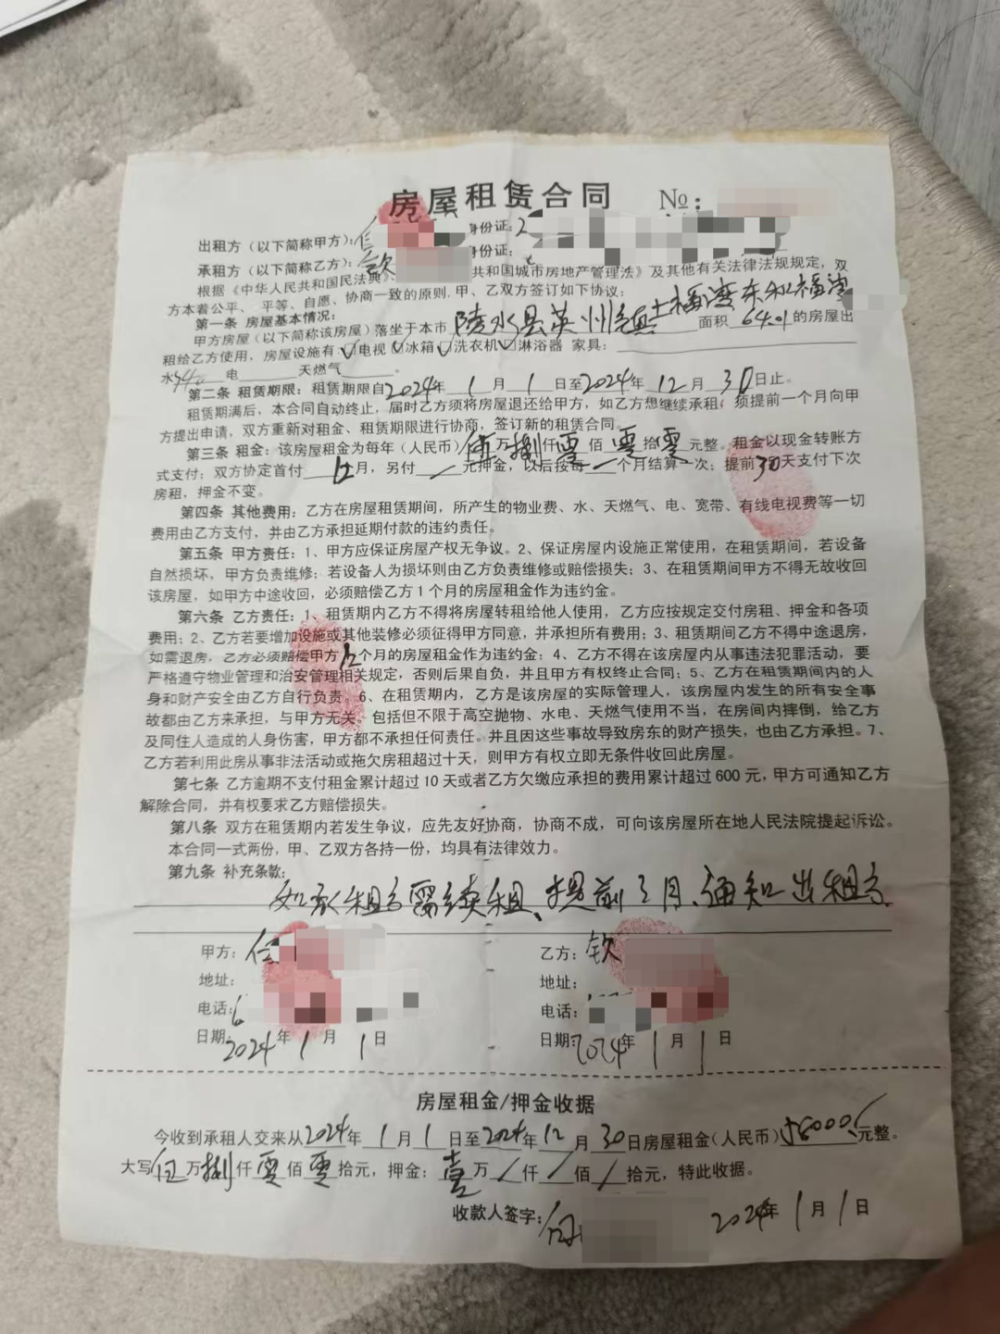 房屋租赁合同 №:
出租方（以下简称甲方）: 身份证: 2
承租方（以下简称乙方）: 钦 身份证:
根据《中华人民共和国民法典》 共和国城市房地产管理法》及其他有关法律法规规定，双
方本着公平、平等、自愿、协商一致的原则，甲、乙双方签订如下协议:
第一条 房屋基本情况:
甲方房屋（以下简称该房屋）落坐于本市 陵水县英州镇 福湾 面积 64.01 的房屋出
租给乙方使用，房屋设施有 ✓电视 ✓冰箱 ✓洗衣机 ✓淋浴器 家具:
水 电 天燃气 。
第二条 租赁期限: 租赁期限自2024年 1 月 1 日至2024年 12 月 30日止。
租赁期满后，本合同自动终止，届时乙方须将房屋退还给甲方，如乙方想继续承租，须提前一个月向甲
方提出申请，双方重新对租金、租赁期限进行协商，签订新的租赁合同。
第三条 租金: 该房屋租金为每年（人民币）伍万捌仟零佰零拾零元整。租金以现金转账方
式支付; 双方协定首付 月，另付 / 元押金，以后按每 个月结算一次; 提前30天支付下次
房租，押金不变。
第四条 其他费用: 乙方在房屋租赁期间，所产生的物业费、水、天燃气、电、宽带、有线电视费等一切
费用由乙方支付，并由乙方承担延期付款的违约责任。
第五条 甲方责任: 1、甲方应保证房屋产权无争议。2、保证房屋内设施正常使用，在租赁期间，若设备
自然损坏，甲方负责维修; 若设备人为损坏则由乙方负责维修或赔偿损失; 3、在租赁期间甲方不得无故收回
该房屋，如甲方中途收回，必须赔偿乙方 1 个月的房屋租金作为违约金。
第六条 乙方责任: 1、租赁期内乙方不得将房屋转租给他人使用，乙方应按规定交付房租、押金和各项
费用; 2、乙方若要增加设施或其他装修必须征得甲方同意，并承担所有费用; 3、租赁期间乙方不得中途退房，
如需退房，乙方必须赔偿甲方 个月的房屋租金作为违约金; 4、乙方不得在该房屋内从事违法犯罪活动，要
严格遵守物业管理和治安管理相关规定，否则后果自负，并且甲方有权终止合同; 5、乙方在租赁期间内的人
身和财产安全由乙方自行负责。6、在租赁期内，乙方是该房屋的实际管理人，该房屋内发生的所有安全事
故都由乙方来承担，与甲方无关。包括但不限于高空抛物、水电、天燃气使用不当，在房间内摔倒，给乙方
及同住人造成的人身伤害，甲方都不承担任何责任。并且因这些事故导致房东的财产损失，也由乙方承担。7、
乙方若利用此房从事非法活动或拖欠房租超过十天，则甲方有权立即无条件收回此房屋。
第七条 乙方逾期不支付租金累计超过 10 天或者乙方欠缴应承担的费用累计超过 600 元，甲方可通知乙方
解除合同，并有权要求乙方赔偿损失。
第八条 双方在租赁期内若发生争议，应先友好协商，协商不成，可向该房屋所在地人民法院提起诉讼。
本合同一式两份，甲、乙双方各持一份，均具有法律效力。
第九条 补充条款:
如承租方需续租、提前 月、通知出租方
甲方: 任 乙方: 钦
地址: 地址:
电话: 6 电话:
日期: 2024年 1 月 1 日 日期: 2024年 1 月 1 日
房屋租金/押金收据
今收到承租人交来从2024年 1 月 1 日至2024年 12 月 30日房屋租金（人民币）58000元整。
大写伍万捌仟零佰零拾元，押金: 壹万 / 仟 / 佰 / 拾元，特此收据。
收款人签字: 2024年 1 月 1 日